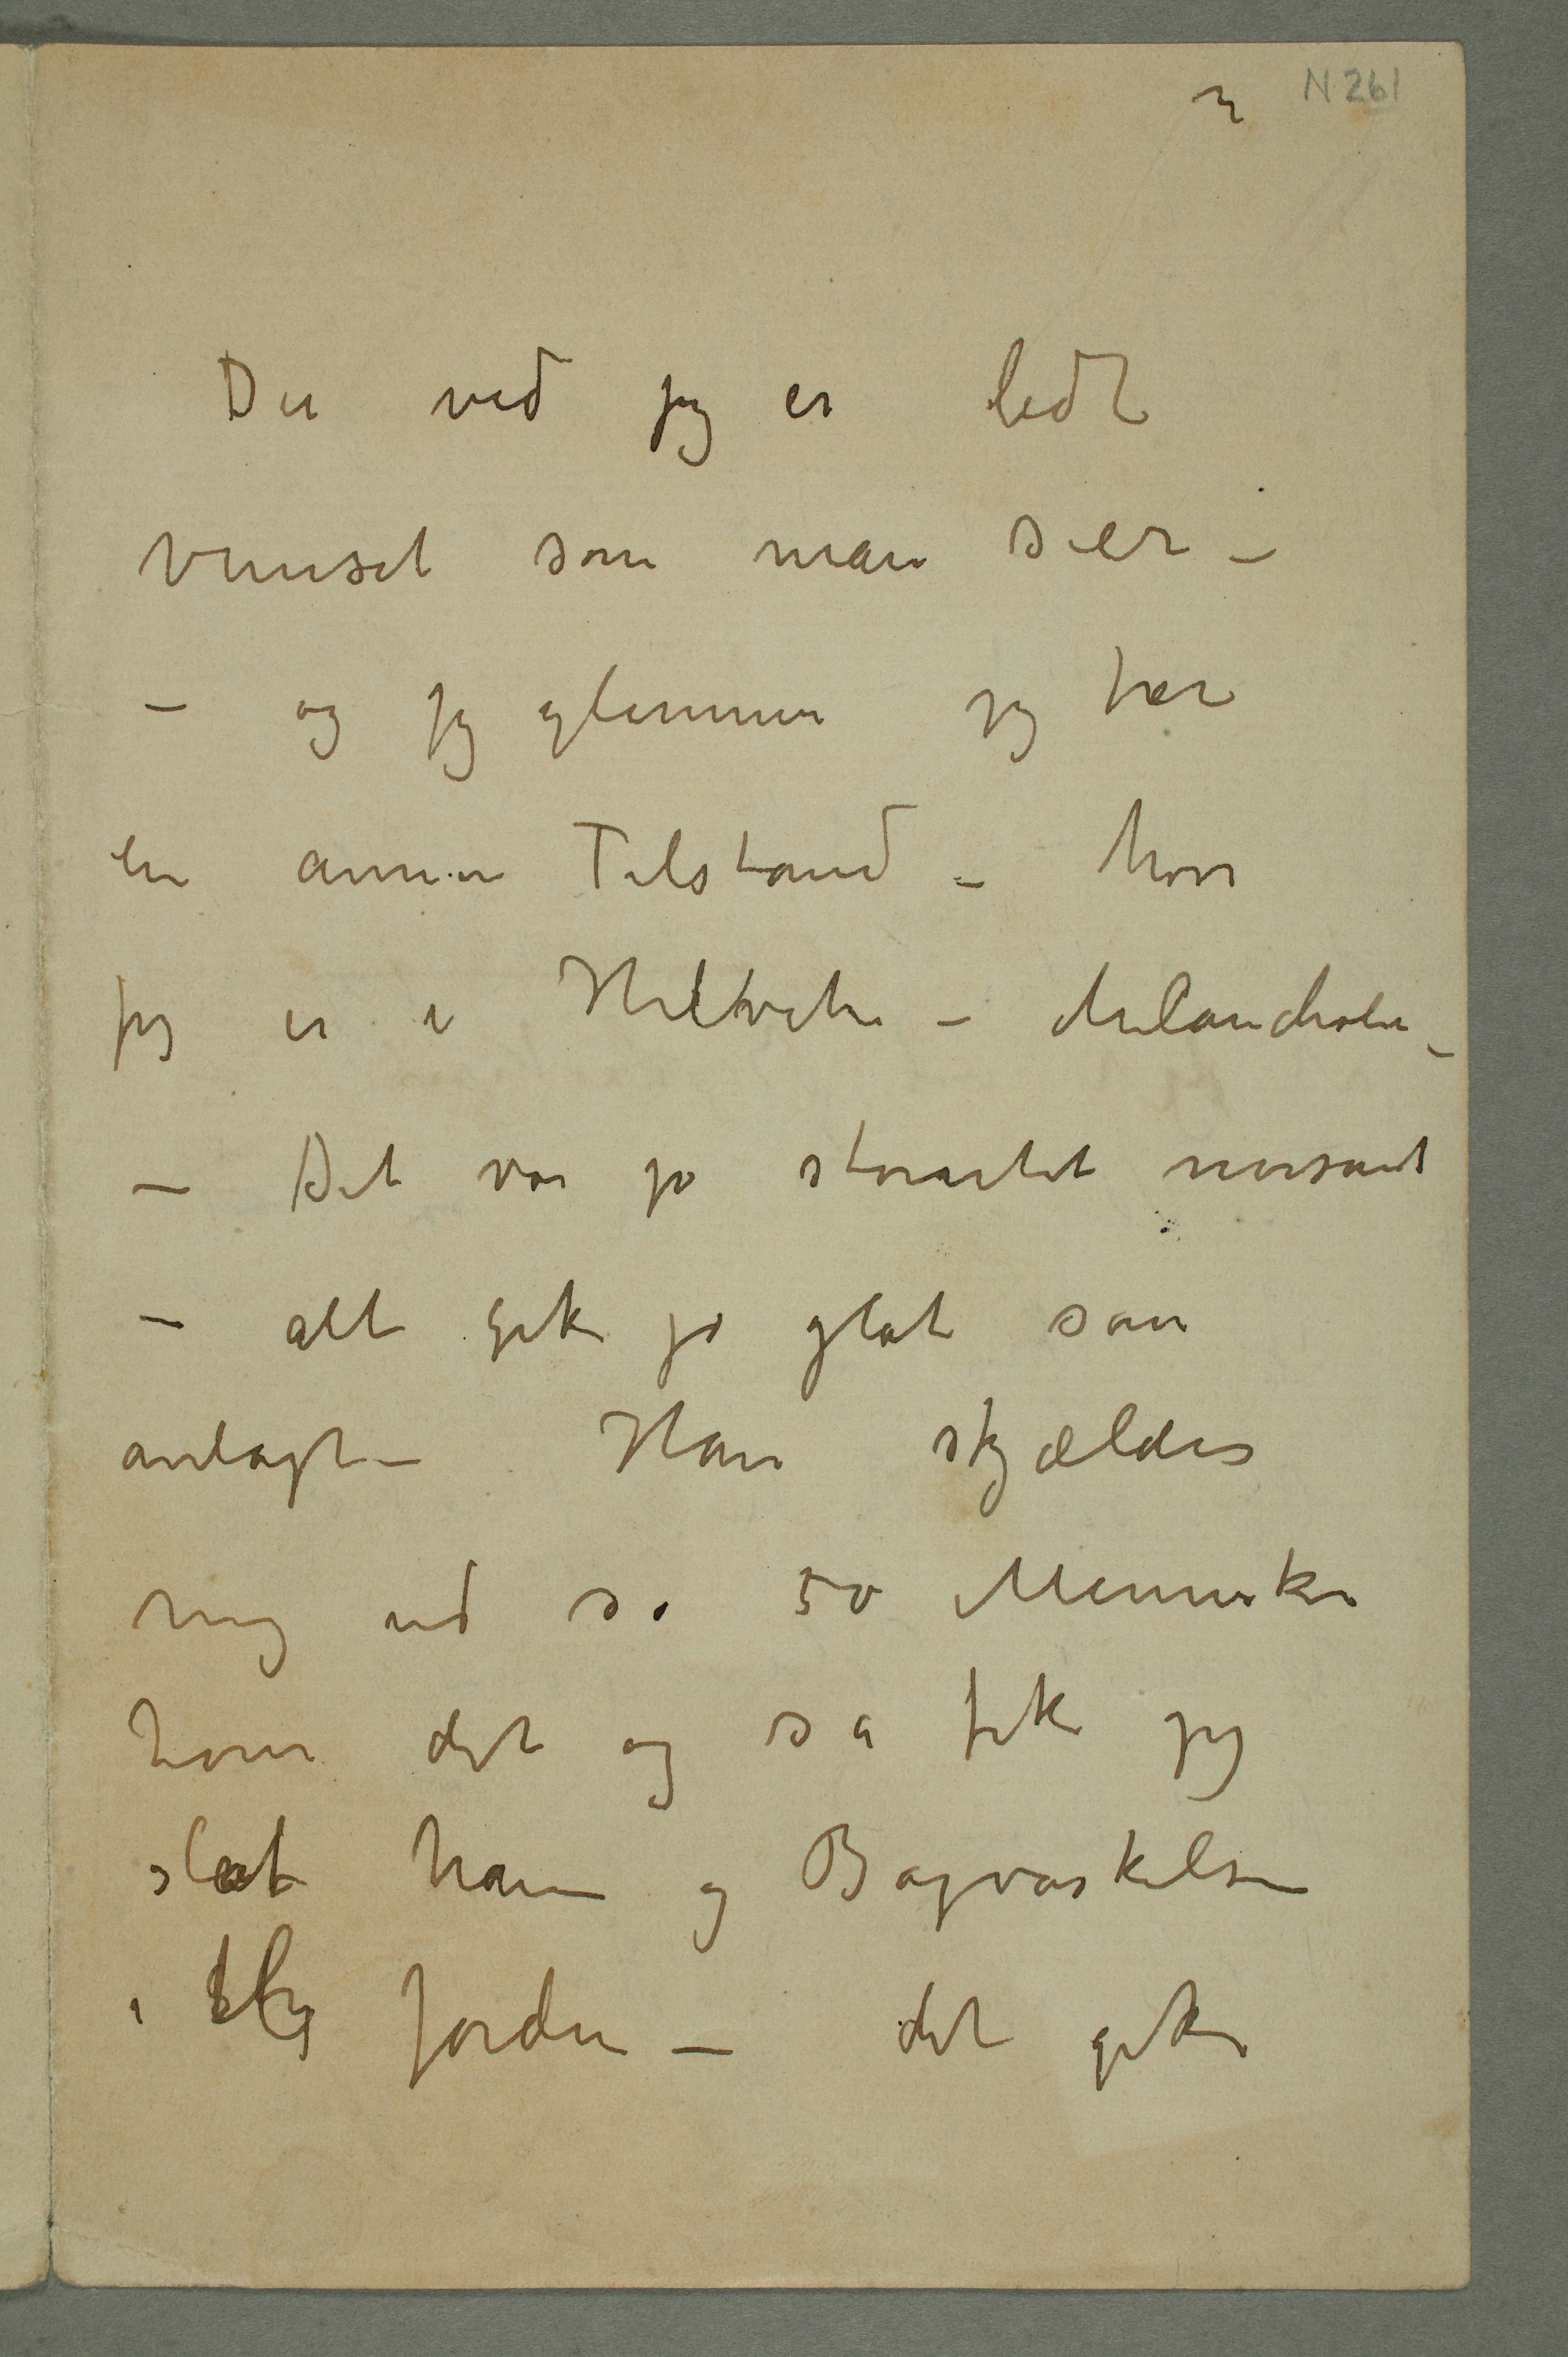 N 261
Du ved jeg er lidt
vimset som man sier –
– og jeg glemmer jeg har
en annen Tilstand – hvor
jeg er i Helvete – Melancholien –
– Det var jo storartet morsomt
– alt gik jo glat som
anlagt – Han skjældes
mig ud så 50 Mennesker
hører det og så fik jeg
slat ham og Bagvaskelsen
i Jorden – det gik